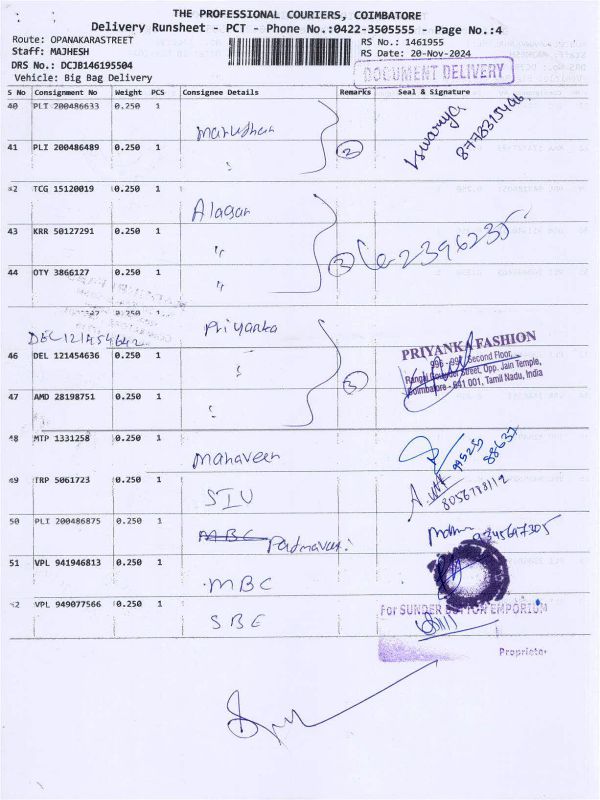 THE PROFESSIONAL COURIERS, COIMBATORE
Delivery Runsheet - PCT - Phone No.:0422-3505555 - Page No.:4
Route: OPANAKARASTREET
RS No.: 1461955
Staff: MAJHESH
RS Date: 20-Nov-2024
DRS No.: DCJB146195504
Vehicle: Big Bag Delivery
DOCUMENT DELIVERY
S No Consignment No Weight PCS Consignee Details Remarks Seal & Signature
40 PLI 200486633 0.250 1
Marudhar
2
8778315496
41 PLI 200486489 0.250 1
"
42 TCG 15120019 0.250 1
Alagan
43 KRR 50127291 0.250 1
"
3
44 OTY 3866127 0.250 1
"
DEC 121454642
Priyanka
46 DEL 121454636 0.250 1
"
3
47 AMD 28198751 0.250 1
"
PRIYANKA FASHION
Second Floor,
Street, Opp. Jain Temple,
Coimbatore - 641 001, Tamil Nadu, India
48 MTP 1331258 0.250 1
Mahaveer
99525 88637
49 TRP 5061723 0.250 1
SIU
50 PLI 200486875 0.250 1
MBC
51 VPL 941946813 0.250 1
MBC
52 VPL 949077566 0.250 1
SBE
For SUNDER BUTTON EMPORIUM
Proprietor